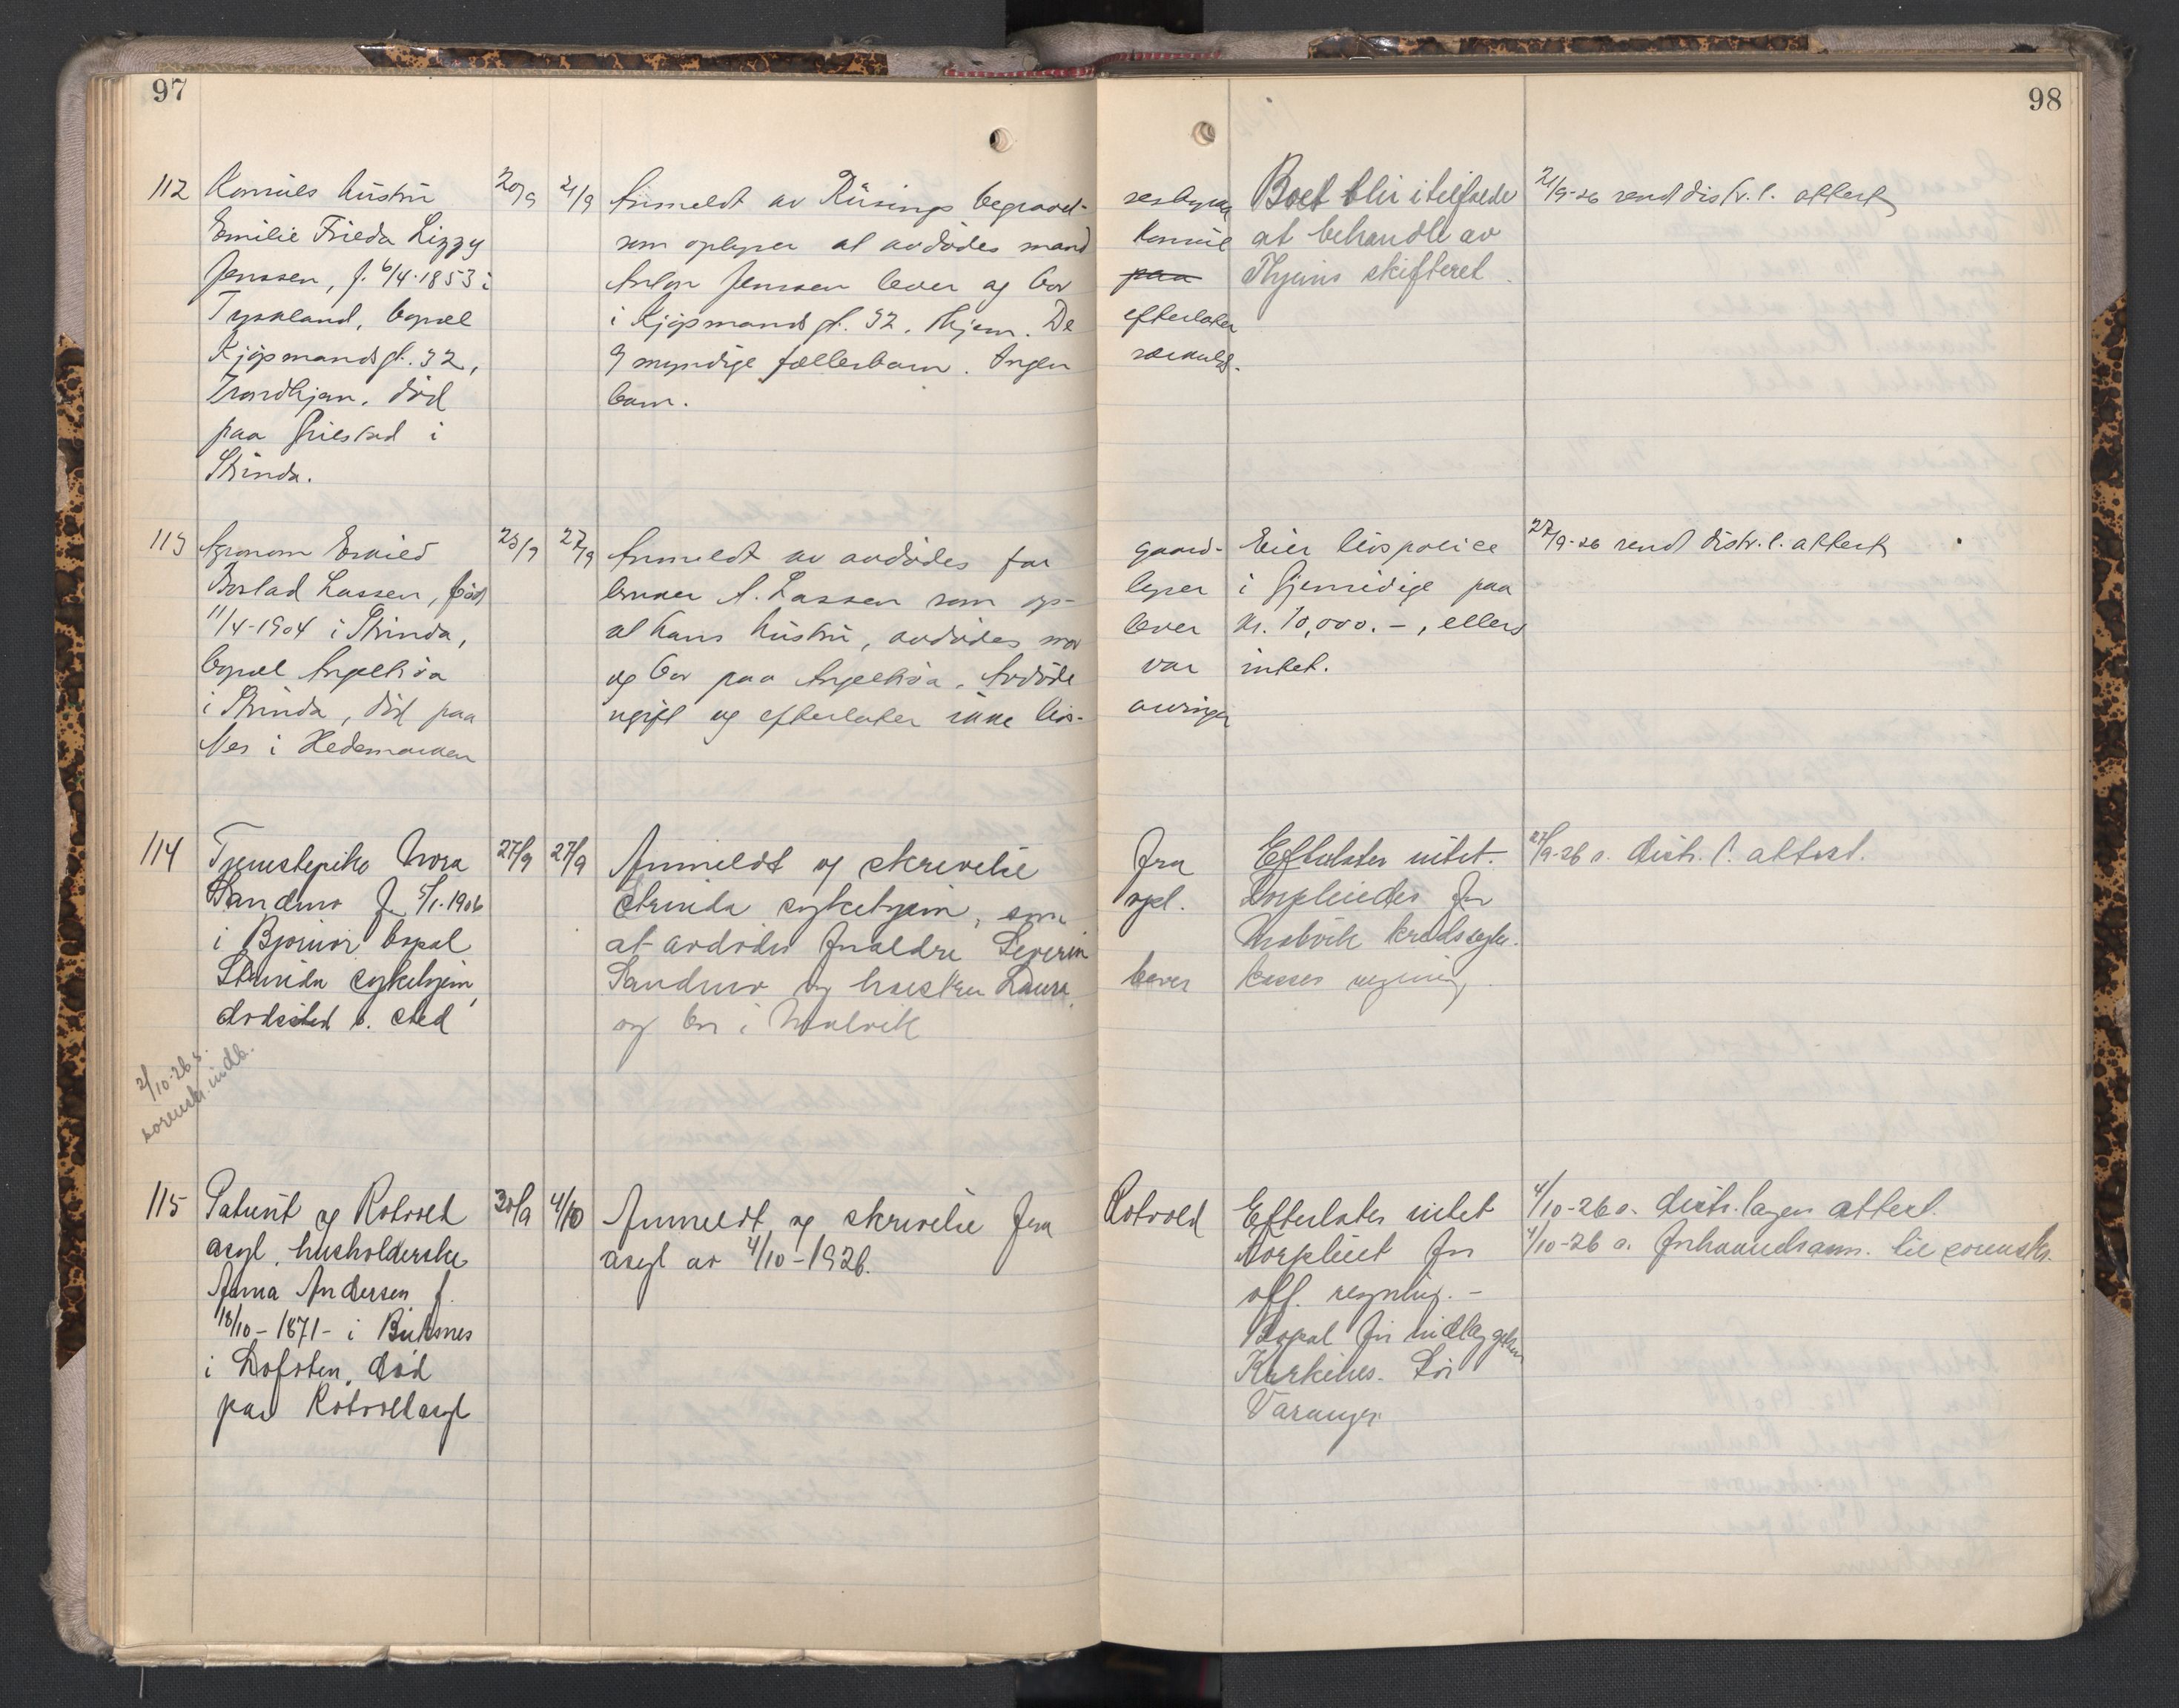 97
98
112 Konsuls hustru 20/9 21/9 Anmeldt av Rüsings begravel-
sesbyraa Boet blir i tilfælde 21/9-26 sendt distr. l. attest
Emilie Frieda Lizzy som oplyser at avdødes mand
konsul at behandle av
Jenssen, f. 6/4-1853 i Anton Jenssen lever og bor
paa Thjems skifteret.
Tyskland, bopæl i Kjøpmandsgt. 32, Thjem. De
efterlater
Kjøpmandsgt. 32, 9 myndige fællesbarn. Ingen
særkulds-
Trondhjem, død barn.
paa i
Strinda.
113 Agronom 25/9 27/9 Anmeldt av avdødes far
gaard- Eier livspolice 27/9-26 sendt distr. l. attest
Lassen, født bruker A. Lassen som op-
lyser i Gjensidige paa
11/4-1904 i Strinda, at hans hustru, avdødes mor
lever kr. 10,000.-, ellers
bopæl Angelltrøa og bor paa Angelltrøa. Avdøde
var intet.
i Strinda, død paa ugift og efterlater ikke livs-
arvinger
Nes i Hedemarken
114 Tjenestepike Nora 27/9 27/9 Anmeldt ved skrivelse
fra Efterlater intet. 27/9-26 s. distr. l. attest.
Sandmo f. 5/1-1906 Strinda sykehjem, som
opl. Forpleiedes for
i Bjørnør bopæl at avdødes forældre Severin
Malvik kredssyke-
Strinda sykehjem, Sandmo og hustru Laura
lever kasses regning.
dødssted s. sted og bor i Malvik
2/10-26 s.
sorensk. indb.
115 Patient ved Rotvold 30/9 4/10 Anmeldt ved skrivelse fra
Rotvold Efterlater intet 4/10-26 s. distr. lægen attest.
asyl, husholderske asyl av 4/10-1926.
forpleiet for 4/10-26 s. forhaandsanm. til sorensk.
Anna Andersen f.
off. regning.-
18/10-1871- i Buksnes
Bopæl før indlæggelsen
i Lofoten, død
Kirkenes. Sør
paa Rotvoll asyl
Varanger